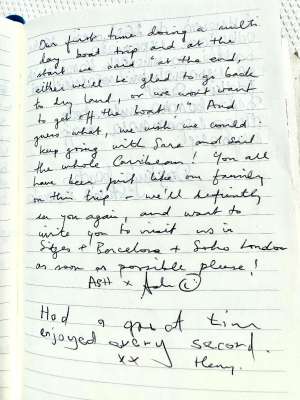 Our first time doing a multi
day boat trip and at the
start we said "at the end,
either we'll be glad to go back
to dry land, or we won't want
to get off the boat!" And
guess what, we wish we could
keep going with Sara and sail
the whole Carribean! You all
have been just like our family
on this trip - we'll definitely
see you again, and want to
invite you to visit us in
Sitges + Barcelona + Soho London
as soon as possible please!
ASH x
Had a great time
enjoyed every second.
xx Henry.